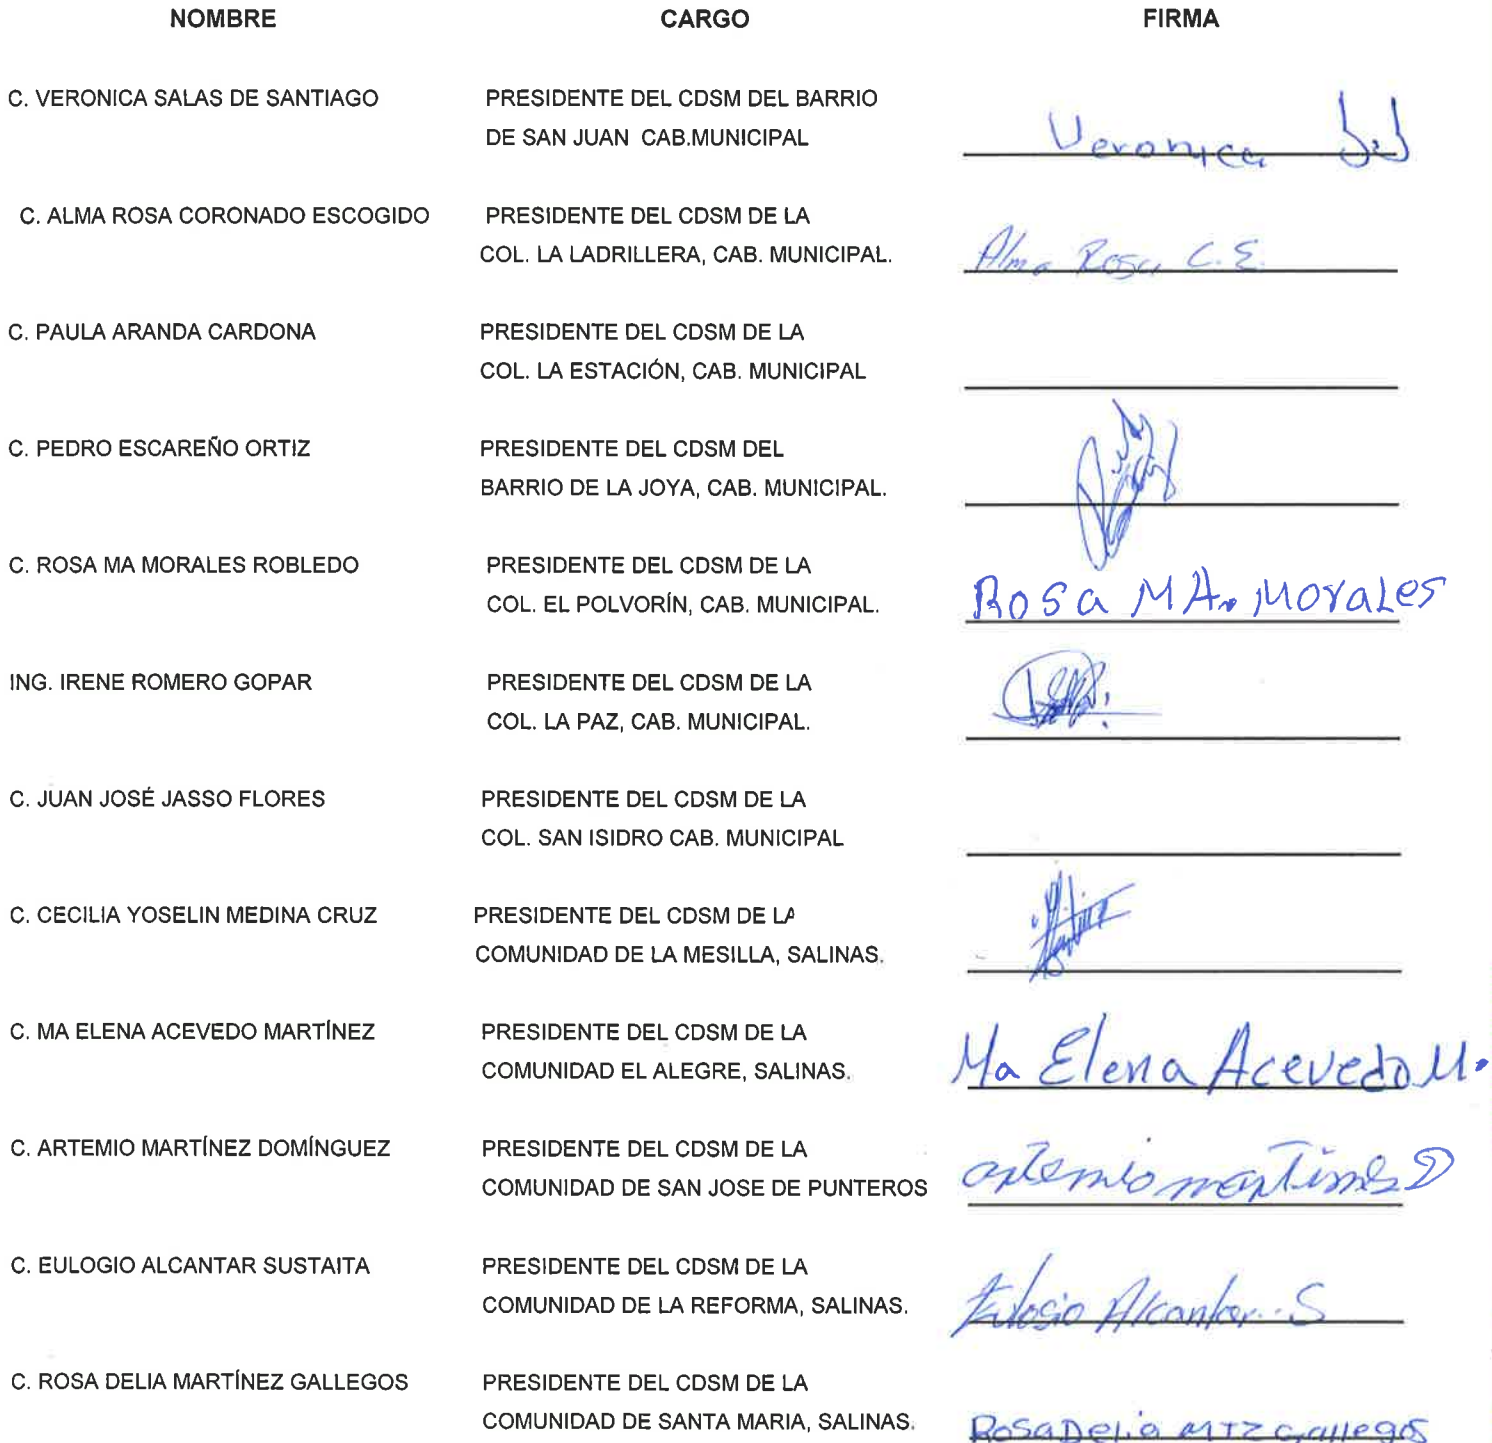 NOMBRE CARGO FIRMA
C. VERONICA SALAS DE SANTIAGO PRESIDENTE DEL CDSM DEL BARRIO
DE SAN JUAN CAB.MUNICIPAL Veronica
C. ALMA ROSA CORONADO ESCOGIDO PRESIDENTE DEL CDSM DE LA
COL. LA LADRILLERA, CAB. MUNICIPAL. Alma Rosa C. E.
C. PAULA ARANDA CARDONA PRESIDENTE DEL CDSM DE LA
COL. LA ESTACIÓN, CAB. MUNICIPAL
C. PEDRO ESCAREÑO ORTIZ PRESIDENTE DEL CDSM DEL
BARRIO DE LA JOYA, CAB. MUNICIPAL.
C. ROSA MA MORALES ROBLEDO PRESIDENTE DEL CDSM DE LA
COL. EL POLVORÍN, CAB. MUNICIPAL. Rosa MA. Morales
ING. IRENE ROMERO GOPAR PRESIDENTE DEL CDSM DE LA
COL. LA PAZ, CAB. MUNICIPAL.
C. JUAN JOSÉ JASSO FLORES PRESIDENTE DEL CDSM DE LA
COL. SAN ISIDRO CAB. MUNICIPAL
C. CECILIA YOSELIN MEDINA CRUZ PRESIDENTE DEL CDSM DE LA
COMUNIDAD DE LA MESILLA, SALINAS.
C. MA ELENA ACEVEDO MARTÍNEZ PRESIDENTE DEL CDSM DE LA
COMUNIDAD EL ALEGRE, SALINAS. Ma Elena Acevedo M.
C. ARTEMIO MARTÍNEZ DOMÍNGUEZ PRESIDENTE DEL CDSM DE LA
COMUNIDAD DE SAN JOSE DE PUNTEROS artemio martines D
C. EULOGIO ALCANTAR SUSTAITA PRESIDENTE DEL CDSM DE LA
COMUNIDAD DE LA REFORMA, SALINAS. Eulogio Alcantar S
C. ROSA DELIA MARTÍNEZ GALLEGOS PRESIDENTE DEL CDSM DE LA
COMUNIDAD DE SANTA MARIA, SALINAS. Rosa Delia MTZ Gallegos